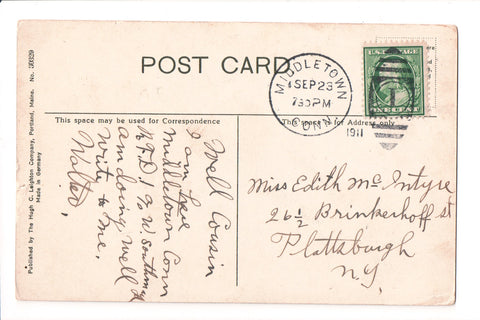 POST CARD
MIDDLETOWN
SEP 23
7 30 PM
CONN.
1911
U.S. POSTAGE
This space may be used for Correspondence
This space is for Address only
Well Cousin
I am here
Middletown Conn
R.F.D 1 % W. Southmayd
am doing Well
Write to me,
Walter,
Miss Edith Mc Intyre
26 1/2 Brinkerhoff st
Plattsburgh
N.Y.
Published by The Hugh C. Leighton Company, Portland, Maine. No.
Made in Germany